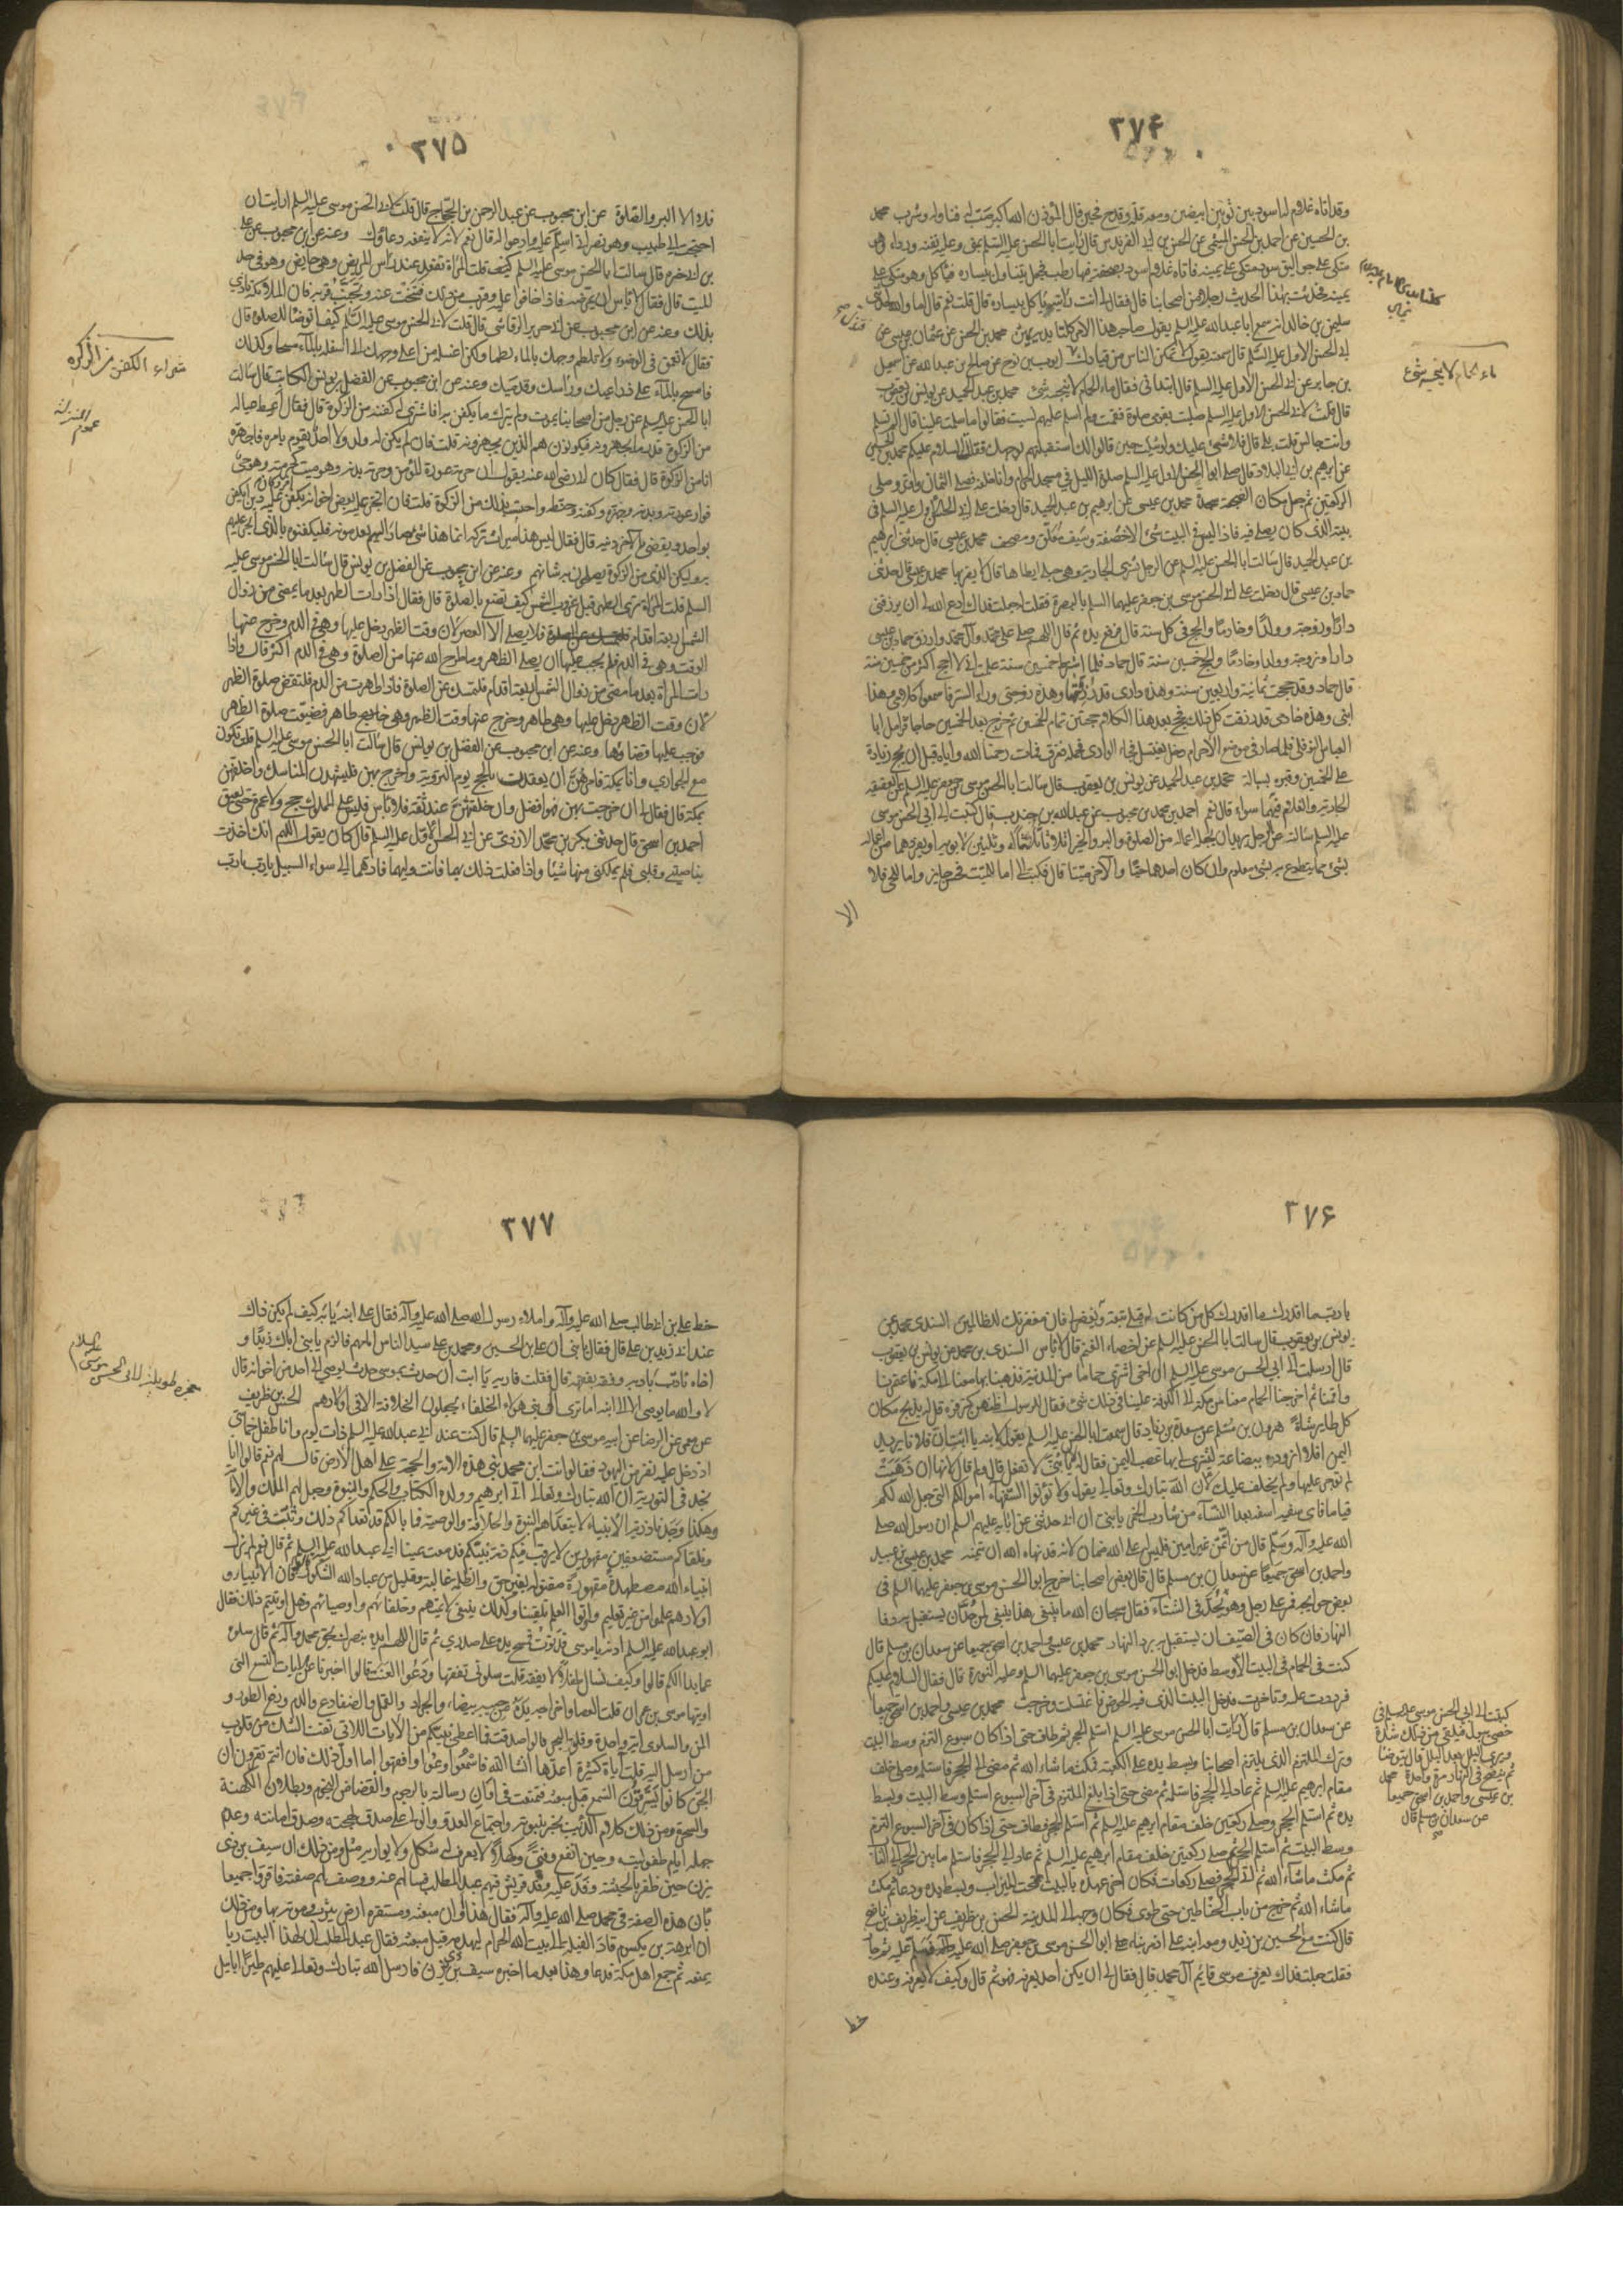 ٣٧۴
وقد اتاه غلام له اسود بين ثوبين ابيضين ومعه قلة وقدح فحين قال المؤذن الله اكبر صب له فناوله وشرب محمد
بن الحسين عن احمد بن الحسن الميثمي عن الحسن بن ابي العرندس قال رايت ابا الحسن عليه السلم بمنى وعليه نقبه ورداء وهو
متكئ على جواليق سود متكئ على يمينه فاتاه غلام اسود بصحفة فيها رطب فجعل يتناول بيساره فياكل وهو متكئ على
يمينه فحدثت بهذا الحديث رجلا من اصحابنا قال فقال لي انت رايته ياكل بيساره قال قلت نعم قال اما والله لحدثني
سليمن بن خالد انه سمع ابا عبد الله عليه السلم يقول صاحب هذا الامر كلتا يديه يمين محمد بن الحسن عن عثمان بن عيسى عن
ابي الحسن الاول عليه السلم قال سمعته يقول لا تمكن الناس من قيادك ايوب بن نوح عن صالح بن عبد الله عن اسمعيل
بن جابر عن ابي الحسن الاول عليه السلم قال ابتداني فقال ماء الحمام لا ينجسه شئ محمد بن عبد الحميد عن يونس بن يعقوب
قال قلت لابي الحسن الاول عليه السلم صليت بقومي صلوة فقمت ولم اسلم عليهم نسيت فقالوا ما سلمت علينا قال الم تسلم
وانت جالس قلت بلى قال فلا شئ عليك ولو شئت حين قالوا لك استقبلتهم بوجهك فقلت السلام عليكم محمد بن الحسين
عن ابرهيم بن ابي البلاد قال صلى ابو الحسن الاول عليه السلم صلوة الليل في مسجد الحرام وانا خلفه فصلى الثمان واوتر وصلى
الركعتين ثم جعل مكان الضجعة سجدة محمد بن عيسى عن ابرهيم بن عبد الحميد قال دخلت على ابي الحسن الاول عليه السلم في
بيته الذي كان يصلي فيه فاذا ليس في البيت شئ الا خصفة وسيف معلق ومصحف محمد بن عيسى قال حدثني ابرهيم
بن عبد الحميد قال سالت ابا الحسن عليه السلم عن الرجل يشتري الجارية وهي حبلى ايطاها قال لا يقربها محمد بن عيسى قال حدثني
حماد بن عيسى قال دخلت على ابي الحسن موسى بن جعفر عليهما السلم بالبصرة فقلت له جعلت فداك ادع الله لي ان يرزقني
دارا وزوجة وولدا وخادما والحج في كل سنة قال فرفع يده ثم قال اللهم صل على محمد وآل محمد وارزق حماد بن عيسى
دارا وزوجة وولدا وخادما والحج خمسين سنة قال حماد فلما اشترط خمسين سنة علمت اني لا احج اكثر من خمسين سنة
قال حماد وقد حججت ثمانية واربعين سنة وهذه داري قد رزقتها وهذه زوجتي وراء الستر تسمع كلامي وهذا
ابني وهذه خادمي قد رزقت كل ذلك فحج بعد هذا الكلام حجتين تمام الخمسين ثم خرج بعد الخمسين حاجا فزامل ابا
العباس النوفلي فلما صار في موضع الاحرام دخل يغتسل فجاء الوادي فحمله فغرق فمات رحمنا الله واياه قبل ان يحج زيادة
على الخمسين وقبره بسيالة محمد بن عبد الحميد عن يونس بن يعقوب قال سالت ابا الحسن موسى بن جعفر عليه السلم عن العقيقة
الجارية والغلام فيها سواء قال نعم احمد بن محمد بن محبوب عن عبد الله بن جندب قال كتبت الى ابي الحسن موسى
عليه السلم سالته عن الرجل يريد ان يجعل اعماله من الصلوة والبر والخير اثلاثا ثلثا له وثلثين لابويه او يفردهما من اعماله
بشئ مما يتطوع به بشئ معلوم وان كان احدهما حيا والآخر ميتا قال فكتب الي اما للميت فحسن جايز واما للحي فلا
الا
ماء الحمام لا ينجسه شئ
٣٧۵
قد ولا البر والصلة عن ابن محبوب عن عبد الرحمن بن الحجاج قال قلت لابي الحسن موسى عليه السلم ارايت ان
احتجت الى طبيب وهو نصراني اسلم عليه وادعو له قال نعم لانه لا ينفعه دعاؤك وعنه عن ابن محبوب عن علي
بن ابي حمزة قال سالت ابا الحسن موسى عليه السلم كيف قلت المراة تقعد عند راس المريض وهي حايض وهو في حد
الميت قال فقال لا باس ان تمرضه فاذا خافوا عليه وقرب من ذلك فتنحت عنه وتجنب قربه فان الملائكة تتاذى
بذلك وعنه عن ابن محبوب عن ابي جرير الرقاشي قال قلت لابي الحسن موسى عليه السلم كيف اتوضا للصلوة قال
فقال لا تعمق في الوضوء ولا تلطم وجهك بالماء لطما ولكن اغسله من اعلى وجهك الى اسفله بالماء مسحا وكذلك
فامسح بالماء على ذراعيك وراسك وقدميك وعنه عن ابن محبوب عن الفضل بن يونس الكاتب قال سالت
ابا الحسن عليه السلم عن رجل من اصحابنا يموت ولم يترك ما يكفن به افاشتري له كفنه من الزكوة قال فقال اعط عياله
من الزكوة قدر ما يجهزونه فيكونون هم الذين يجهزونه قلت فان لم يكن له ولد ولا احد يقوم بامره فاجهزه
انا من الزكوة قال فقال كان ابي رضي الله عنه يقول ان حرمة عورة المؤمن وحرمة بدنه وهو ميت كحرمته وهو حي
فوار عورته وبدنه وجهزه وكفنه وحنطه واحتسب بذلك من الزكوة قلت فان اتجر عليه بعض اخوانه بكفن آخر وكان عليه دين ايكفن
بواحد ويقضي بالآخر دينه قال فقال ليس هذا ميراث تركه انما هذا شئ صار اليهم بعد موته فليكفنوه بالذي اتجر عليهم
به وليكن الذي من الزكوة يصلحون به شانهم وعنه عن ابن محبوب عن الفضل بن يونس قال سالت ابا الحسن موسى عليه
السلم قلت المراة ترى الطهر قبل غروب الشمس كيف تصنع بالصلوة قال فقال اذا رات الطهر بعد ما يمضي من زوال
الشمس اربعة اقدام فلا يصلي الا العصر لان وقت الظهر دخل عليها وهي في الدم وخرج عنها
الوقت وهي في الدم فلم يجب عليها ان يصلي الظهر وما طرح الله عنها من الصلوة وهي في الدم اكثر قال واذا
رات المراة بعد ما مضى من زوال الشمس اربعة اقدام فلتمسك عن الصلوة فاذا طهرت من الدم فلتقض صلوة الظهر
لان وقت الظهر دخل عليها وهي طاهر وخرج عنها وقت الظهر وهي طاهر فضيعت صلوة الظهر
فوجب عليها قضاؤها وعنه عن ابن محبوب عن الفضل بن يونس قال سالت ابا الحسن موسى عليه السلم قلت تكون
معي الجواري وانا بمكة فامرهن ان يعقدن بالحج يوم التروية واخرج بهن فليشهدن المناسك او اخلفهن
بمكة قال فقال لي ان خرجت بهن فهو افضل وان خلفتهن عند ثقة فلا باس فليس على المملوك حج ولا عمرة حتى يعتق
احمد بن اسحق قال حدثني بكر بن محمد الازدي عن ابي الحسن الاول عليه السلم قال كان يقول اللهم انك اخذت
بناصيتي وقلبي فلم تملكني منها شيئا واذا فعلت ذلك بهما فانت وليهما فادهما الى سواء السبيل يا رب يا رب
شراء الكفن من الزكوة
عموم المنزلة
٣٧۶
يا رب ما اقدرك ما اقدرك كل من كانت له قبلي تبعة فان مغفرتك للظالمين السندي بن محمد عن
يونس بن يعقوب قال سالت ابا الحسن عليه السلم عن اخصاء الغنم قال لا باس السندي بن محمد عن يونس بن يعقوب
قال ارسلت الى ابي الحسن موسى عليه السلم ان اخي اشترى حماما من المدينة فذهبنا بها معنا الى مكة فاعتمرنا
واقمنا ثم اخرجنا الحمام معنا من مكة الى الكوفة علينا في ذلك شئ فقال للرسول اظنهن كن فرهة قل له يذبح مكان
كل طاير شاة هرون بن مسلم عن مسعدة بن زياد قال سمعت ابا الحسن عليه السلم يقول لابنه يا بني ان فلانا يريد
اليمن افلا ازوده ببضاعة ليشتري لي بها عصب اليمن فقال له يا بني لا تفعل قال ولم قال لانها ان ذهبت
لم توجر عليها ولم يخلف عليك لان الله تبارك وتعالى يقول ولا تؤتوا السفهاء اموالكم التي جعل الله لكم
قياما فاي سفيه اسفه بعد النساء من شارب الخمر يا بني ان ابي حدثني عن آبائه عليهم السلم ان رسول الله صلى
الله عليه وآله وسلم قال من ائتمن غير امين فليس له على الله ضمان لانه قد نهاه الله ان يتمنه محمد بن عيسى بن عبيد
واحمد بن اسحق جميعا عن سعدان بن مسلم قال قال بعض اصحابنا خرج ابو الحسن موسى بن جعفر عليهما السلم في
بعض حوايجه فمر على رجل وهو يحد في الشتاء فقال سبحان الله ما ينبغي هذا ينبغي لمن حد ان يستقبل به دفا
النهار فان كان في الصيف ان يستقبل به برد النهار محمد بن عيسى واحمد بن اسحق جميعا عن سعدان بن مسلم قال
كنت في الحمام في البيت الاوسط فدخل ابو الحسن موسى بن جعفر عليهما السلم وعليه النورة قال فقال السلام عليكم
فرددت عليه وتاخرت فدخل البيت الذي فيه الحوض فاغتسلت وخرجت محمد بن عيسى واحمد بن اسحق جميعا
عن سعدان بن مسلم قال رايت ابا الحسن موسى عليه السلم استلم الحجر ثم طاف حتى اذا كان اسبوع التزم وسط البيت
وترك الملتزم الذي يلتزم اصحابنا وبسط يده على الكعبة ثم مكث ما شاء الله ثم مضى الى الحجر فاستلمه وصلى خلف
مقام ابرهيم عليه السلم ثم عاد الى الحجر فاستلمه ثم مضى حتى اذا بلغ الملتزم في آخر السبوع استلم وسط البيت وبسط
يده ثم استلم الحجر وصلى ركعتين خلف مقام ابرهيم عليه السلم ثم استلم الحجر فطاف حتى اذا كان في آخر السبوع التزم
وسط البيت ثم استلم الحجر ثم صلى ركعتين خلف مقام ابرهيم عليه السلم ثم عاد الى الحجر فاستلم ما بين الحجر الى الباب
ثم مكث ما شاء الله ثم اتى الحجر فصلى ركعات فكان آخر عهده بالبيت تحت الميزاب وبسط يده ودعا ثم مكث
ما شاء الله ثم خرج من باب الحناطين حتى طوى فكان وجهه الى المدينة الحسن بن ظريف عن ابيه ظريف بن ناصح
قال كنت مع الحسين بن زيد ومعه ابنه علي اذ مر بنا ابو الحسن موسى بن جعفر صلى الله عليه فسلم عليه ثم جاز
فقلت جعلت فداك يعرف موسى قايم آل محمد قال فقال لي ان يكن احد يعرفه فهو ثم قال وكيف لا يعرفه وعنده
خط
كتبت الى ابي الحسن موسى عليه السلم في
خصي يبول فيلقى من ذلك شدة
ويرى البلل بعد البلل قال يتوضا
ثم ينتضح في النهار مرة واحدة محمد
بن عيسى واحمد بن اسحق جميعا
عن سعدان بن مسلم قال
٣٧٧
خط علي بن ابي طالب صلى الله عليه وآله واملاء رسول الله صلى الله عليه وآله فقال علي ابنه يا ابه كيف لم يكن ذاك
عند ابي زيد بن علي قال فقال يا بني ان علي بن الحسين ومحمد بن علي سيدا الناس وامامهم فالزم يا بني اباك زيدا و
اخاه فتادب بادبه وفقه بفقهه قال فقلت فاريه يا ابت ان حدث بموسى حدث يوصي الى احد من اخوانه قال
لا والله ما يوصي الا الى ابنه اما ترى اي بني هؤلاء الخلفاء لا يجعلون الخلافة الا في اولادهم الحسن بن ظريف
عن معمر عن الرضا عن ابيه موسى بن جعفر عليهما السلم قال كنت عند ابي عبد الله عليه السلم ذات يوم وانا طفل خماسي
اذ دخل عليه نفر من اليهود فقالوا انت ابن محمد نبي هذه الامة والحجة على اهل الارض قال لهم نعم قالوا انا
نجد في التورية ان الله تبارك وتعالى آتى ابرهيم وولده الكتاب والحكم والنبوة وجعل لهم الملك والامامة
وهكذا وجدنا ذرية الانبياء لا يتعداهم النبوة والخلافة والوصية فما بالكم قد تعداكم ذلك وثبت في غيركم
ونلقاكم مستضعفين مقهورين لا يرقب فيكم ذمة نبيكم فدمعت عينا ابي عبد الله عليه السلم ثم قال نعم لم تزل
انبياء الله مضطهدة مقهورة مقتولة بغير حق والظلمة غالبة وقليل من عباد الله الشكور قالوا فان الانبياء و
اولادهم علموا من غير تعليم واوتوا العلم تلقينا وكذلك ينبغي لائمتهم وخلفائهم واوصيائهم فهل اوتيتم ذلك فقال
ابو عبد الله عليه السلم ادنه يا موسى فدنوت فمسح يده على صدري ثم قال اللهم ايده بنصرك بحق محمد وآله ثم قال سلوه
عما بدا لكم قالوا وكيف نسال طفلا لا يفقه قلت سلوني تفقها ودعوا العنت قالوا اخبرنا عن الآيات التسع التي
اوتيها موسى بن عمران قلت العصا واخراجه يده من جيبه بيضاء والجراد والقمل والضفادع والدم ورفع الطور و
المن والسلوى آية واحدة وفلق البحر قالوا صدقت فما اعطي نبيكم من الآيات اللاتي نفت الشك من قلوب
من ارسل اليه قلت آيات كثيرة اعدها ان شا الله فاسمعوا وعوا وافقهوا اما اول ذلك فان انتم تقرون ان
الجن كانوا يسترقون السمع قبل مبعثه فمنعت في اوان رسالته بالرجوم وانقضاض النجوم وبطلان الكهنة
والسحرة ومن ذلك كلام الذئب يخبر بنبوته واجتماع العدو والولي على صدق لهجته وصدق امانته وعدم
جهله ايام طفوليته وحين ايفع وفتى وكهلا لا يعرف له شكل ولا يوازيه مثل ومن ذلك ان سيف بن ذي
يزن حين ظفر بالحبشة وفد عليه وفد قريش فيهم عبد المطلب فسالهم عنه ووصف لهم صفته فاقروا جميعا
بان هذه الصفة في محمد صلى الله عليه وآله فقال هذا اوان مبعثه ومستقره ارض يثرب وموته بها ومن ذلك
ان ابرهة بن يكسوم قاد الفيلة الى بيت الله الحرام ليهدمه قبل مبعثه فقال عبد المطلب ان لهذا البيت ربا
يمنعه ثم جمع اهل مكة فدعا وهذا بعد ما اخبره سيف بن ذي يزن فارسل الله تبارك وتعالى عليهم طيرا ابابيل
معجزه طويلة لابي الحسن موسى عليه السلام